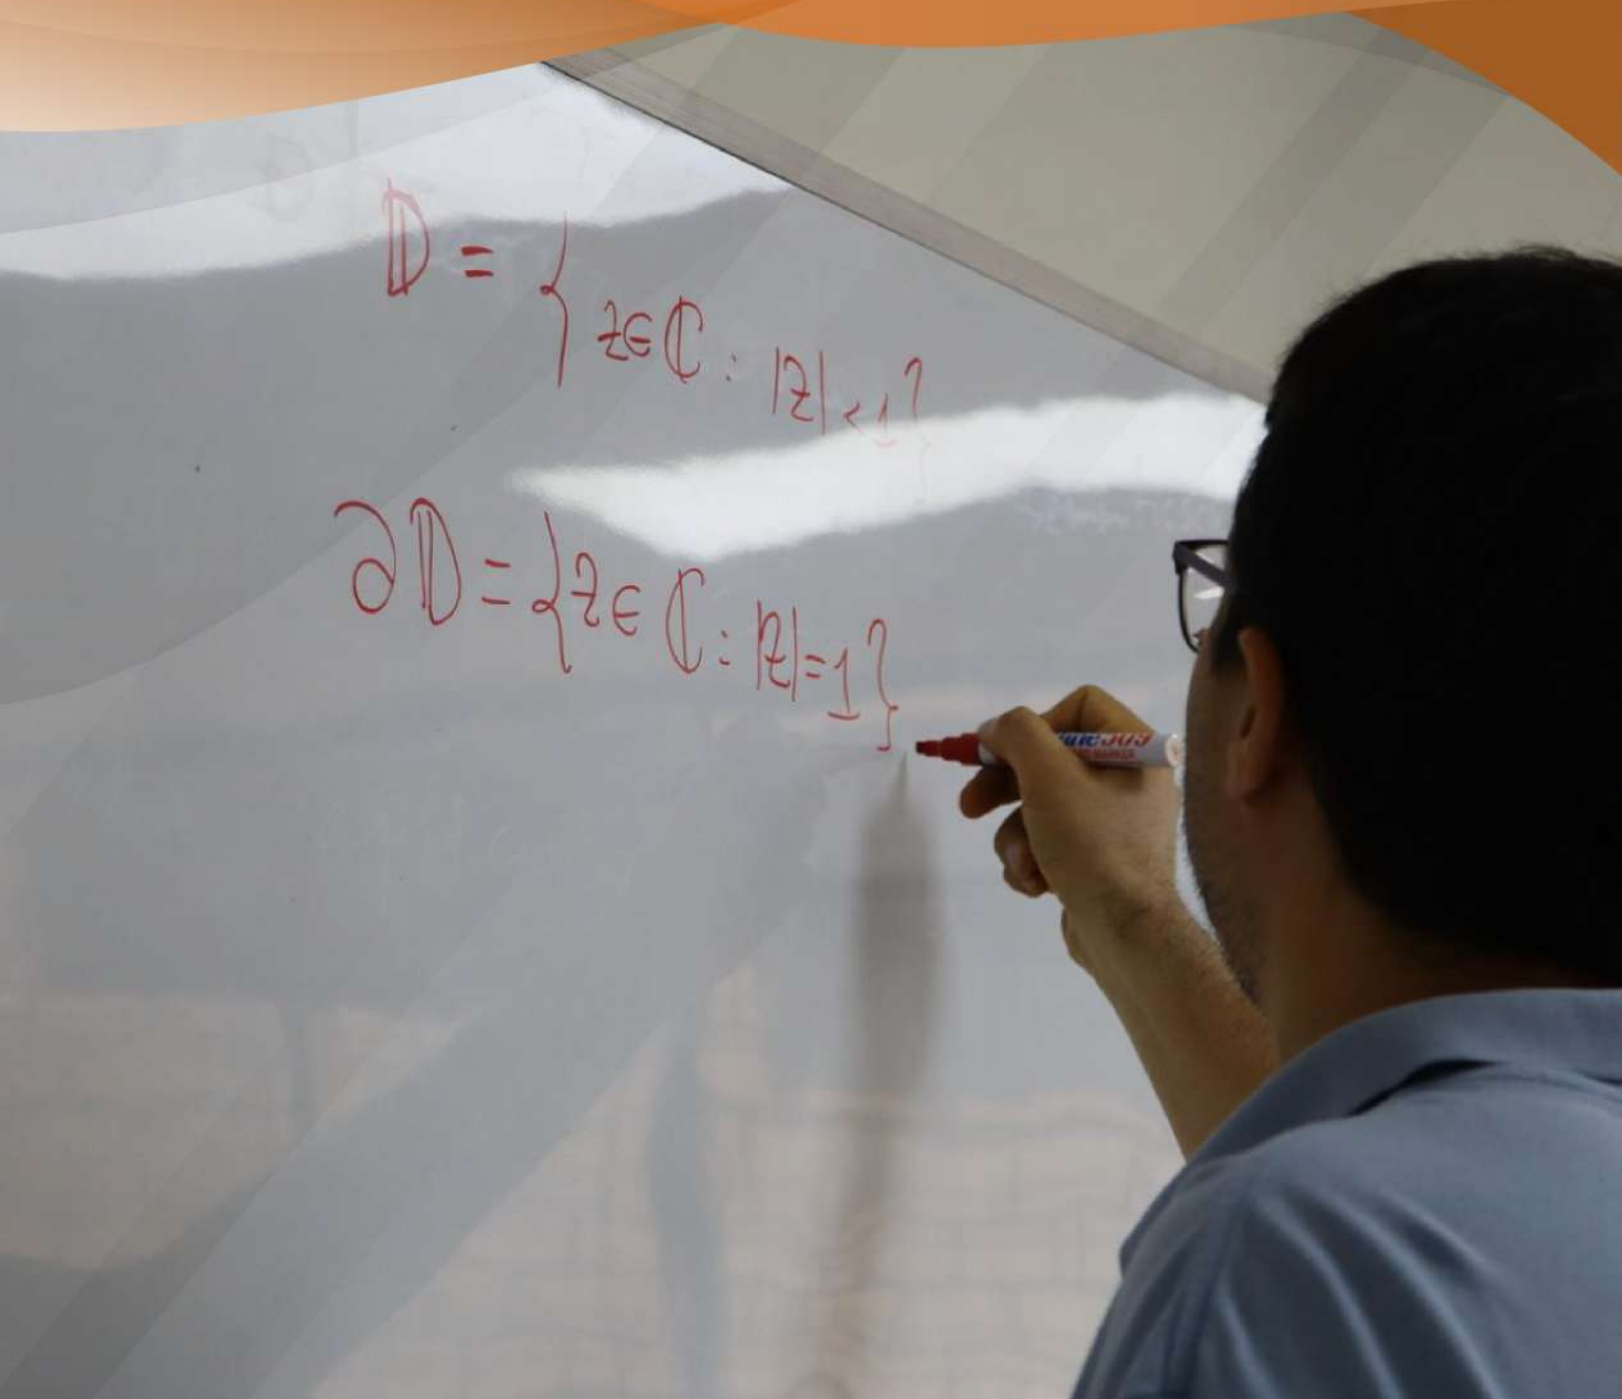 𝔻 = {z∈ℂ : |z|<1}
∂𝔻 = {z∈ℂ : |z|=1}